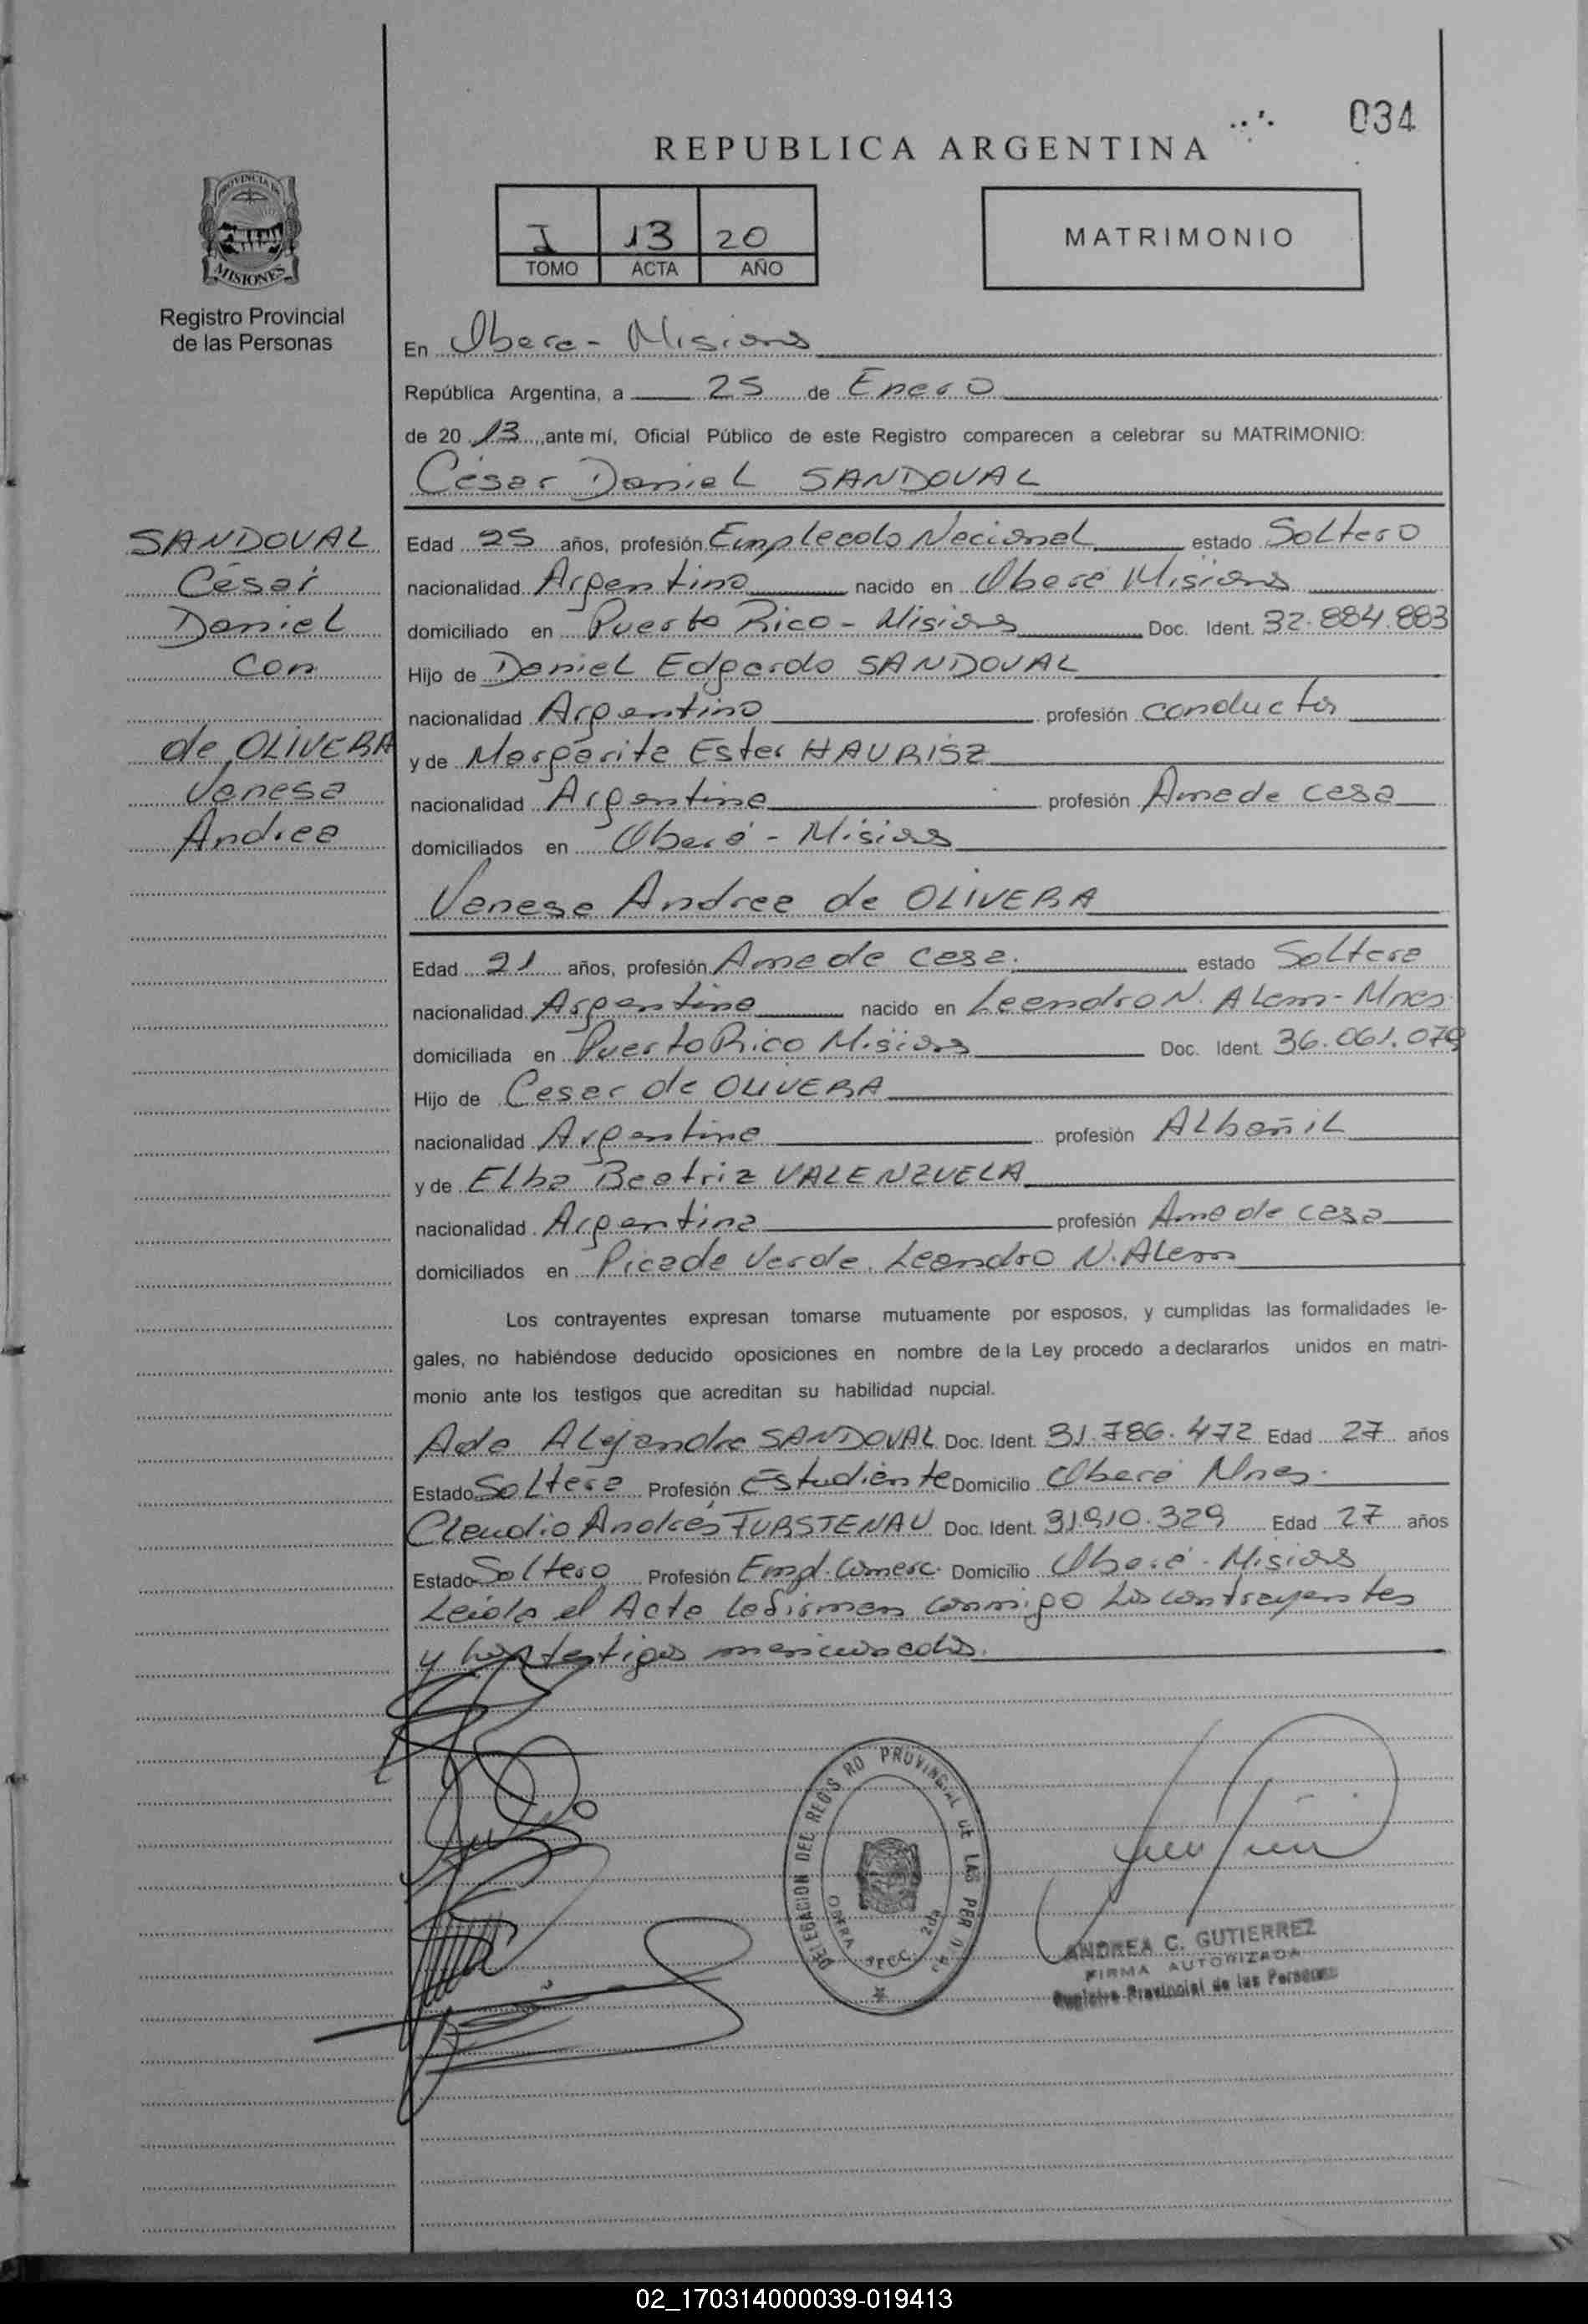 034
REPUBLICA ARGENTINA
I 13 20
TOMO ACTA AÑO
MATRIMONIO
PROVINCIA DE
MISIONES
Registro Provincial
de las Personas
En Oberá - Misiones
República Argentina, a 25 de Enero
de 20 13 ante mí, Oficial Público de este Registro comparecen a celebrar su MATRIMONIO:
César Daniel SANDOVAL
SANDOVAL
César
Daniel
con
de OLIVERA
Vanesa
Andrea
Edad 25 años, profesión Empleado Nacional estado Soltero
nacionalidad Argentino nacido en Oberá Misiones
domiciliado en Puerto Rico - Misiones Doc. Ident. 32.884.883
Hijo de Daniel Edgardo SANDOVAL
nacionalidad Argentino profesión conductor
y de Margarita Ester HAURISZ
nacionalidad Argentina profesión Ama de casa
domiciliados en Oberá - Misiones
Vanesa Andrea de OLIVERA
Edad 21 años, profesión Ama de casa. estado Soltera
nacionalidad Argentina nacido en Leandro N. Alem - Mnes
domiciliada en Puerto Rico Misiones Doc. Ident. 36.061.079
Hijo de Cesar de OLIVERA
nacionalidad Argentino profesión Albañil
y de Elba Beatriz VALENZUELA
nacionalidad Argentina profesión Ama de casa
domiciliados en Picada Verde. Leandro N. Alem
Los contrayentes expresan tomarse mutuamente por esposos, y cumplidas las formalidades le-
gales, no habiéndose deducido oposiciones en nombre de la Ley procedo a declararlos unidos en matri-
monio ante los testigos que acreditan su habilidad nupcial.
Ada Alejandra SANDOVAL Doc. Ident. 31.786.472 Edad 27 años
Estado Soltera Profesión Estudiante Domicilio Oberá Mnes.
Claudio Andrés FURSTENAU Doc. Ident. 31.910.329 Edad 27 años
Estado Soltero Profesión Empl. Comerc. Domicilio Oberá - Misiones
Leída el Acta la firman conmigo los contrayentes
y los testigos mencionados.
DELEGACION DEL REGIS RO PROVINCIAL DE LAS PER
OBERA SECC. 2da
ANDREA C. GUTIERREZ
FIRMA AUTORIZADA
Registro Provincial de las Personas
02_170314000039-019413